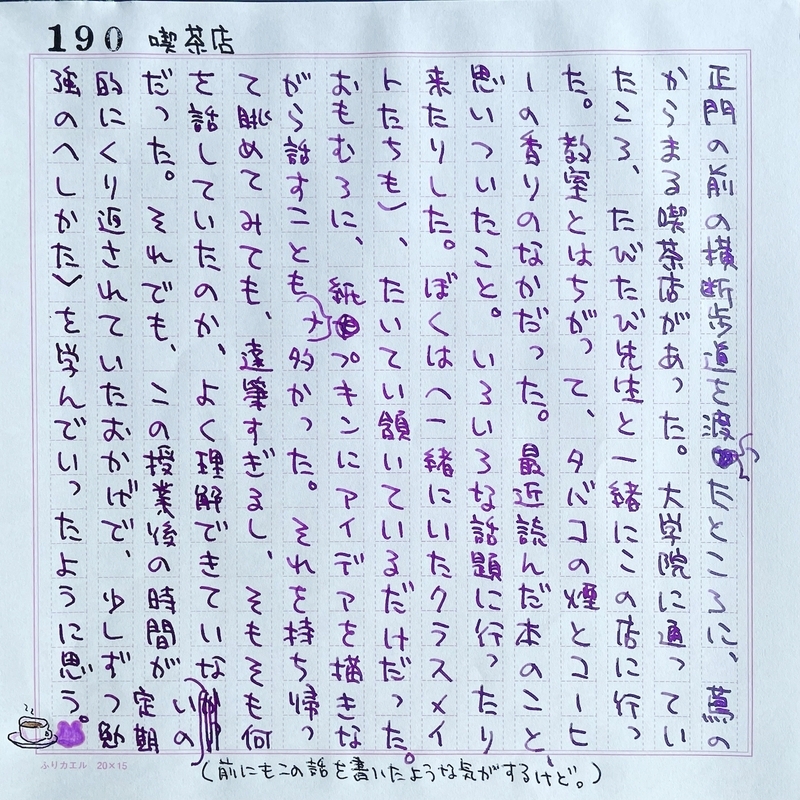 190 喫茶店
正門の前の横断歩道を渡ったところに、蔦の
からまる喫茶店があった。大学院に通ってい
たころ、たびたび先生と一緒にこの店に行っ
た。教室とはちがって、タバコの煙とコーヒ
ーの香りのなかだった。最近読んだ本のこと、
思いついたこと。いろいろな話題に行ったり
来たりした。ぼくは（一緒にいたクラスメイ
トたちも）、たいてい頷いているだけだった。
おもむろに、紙ナプキンにアイデアを描きな
がら話すことも多かった。それを持ち帰っ
て眺めてみても、達筆すぎるし、そもそも何
を話していたのか、よく理解できていないの
だった。それでも、この授業後の時間が定期
的にくり返されていたおかげで、少しずつ勉
強の〈しかた〉を学んでいったように思う。
（前にもこの話を書いたような気がするけど。）
ふりカエル 20×15